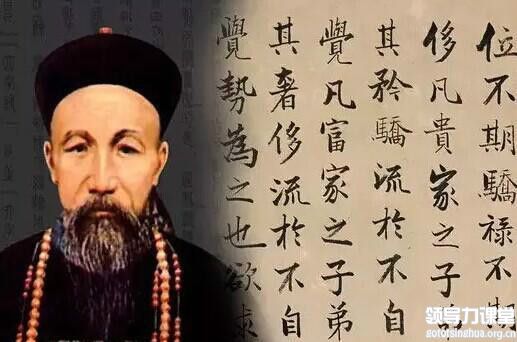 位不期驕禄不期
侈凡貴家之子弟
其矜驕流於不自
覺凡富家之子弟
其奢侈流於不自
覺勢為之也欲
领导力课堂
gototsinghua.org.cn